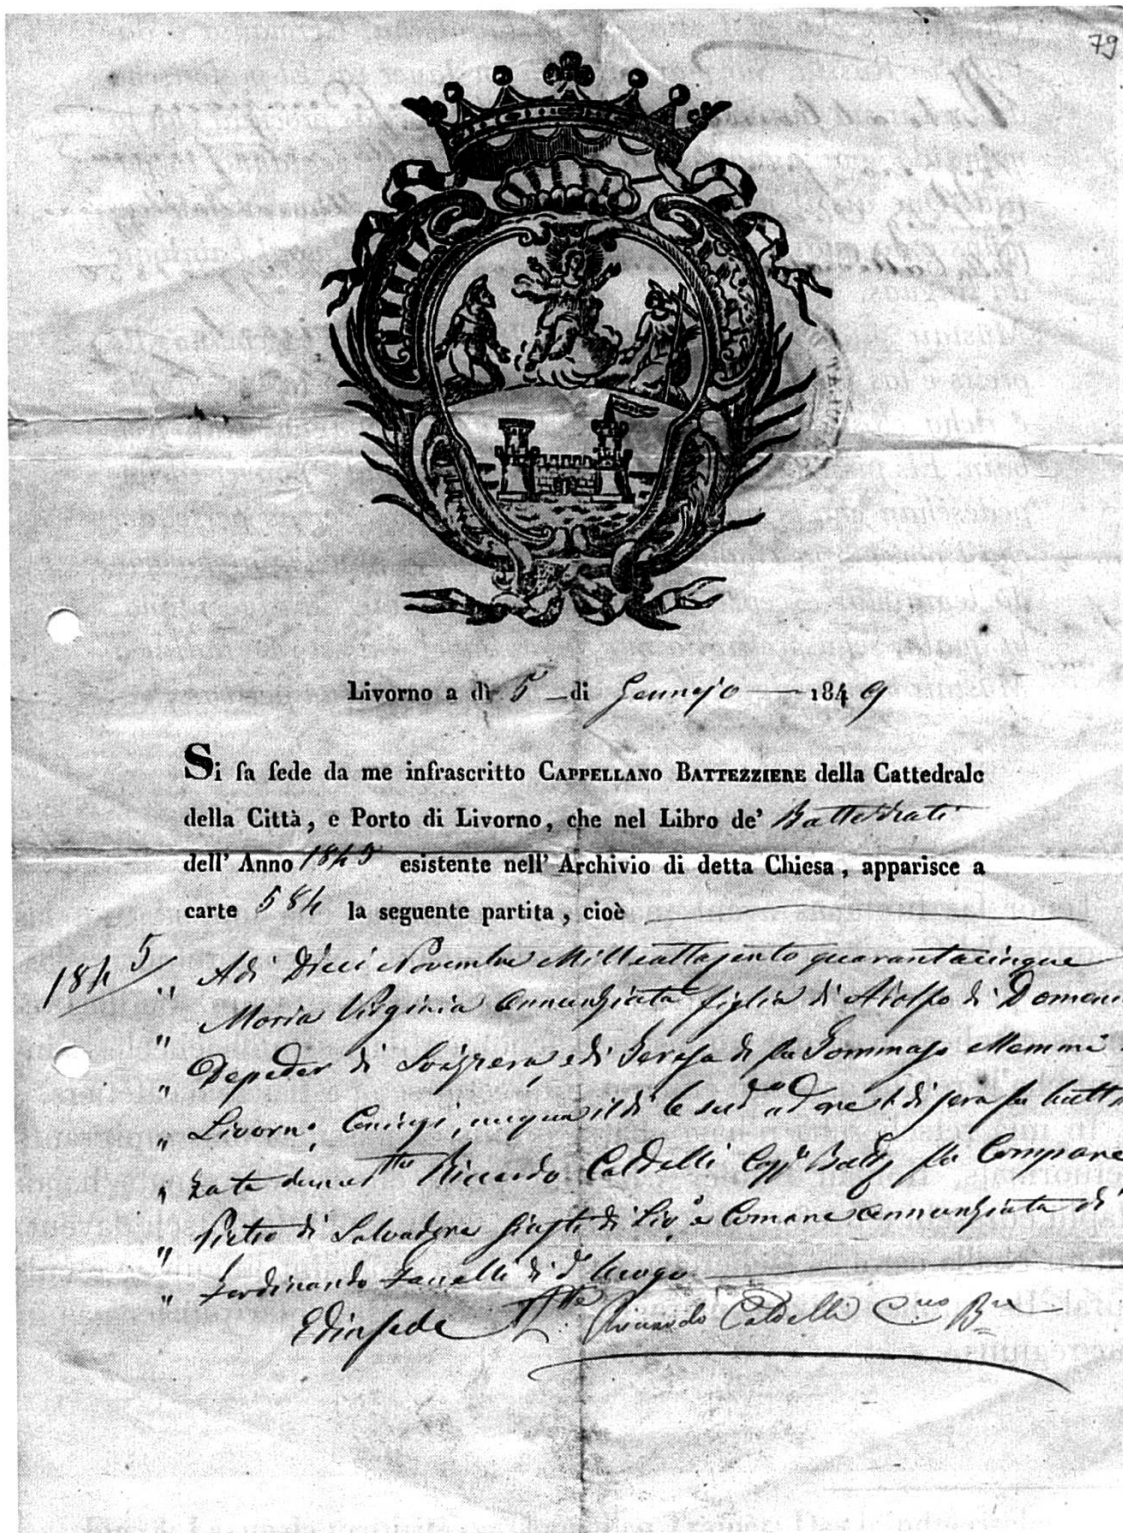 79
Livorno a dì 5 di Gennajo 1849
Si fa fede da me infrascritto CAPPELLANO BATTEZZIERE della Cattedrale
della Città, e Porto di Livorno, che nel Libro de' Battezzati
dell' Anno 1845 esistente nell' Archivio di detta Chiesa, apparisce a
carte 584 la seguente partita, cioè
1845 „ Adì Dieci Novembre Milleottocento quarantacinque
„ Maria Virginia Annunziata figlia di Adolfo di
„ Depeder di Svizzera, e di Teresa di fu Tommaso Memmi
„ Livorno, Coniugi, nacqua il dì 6 sud.º ad ore di sera fu
„ Riccardo Caldelli fu Compare
„ Pietro di Salvadore di Liv.º e Comare Annunziata di
„ Ferdinando Zanelli di d.º luogo
E in fede Riccardo Caldelli